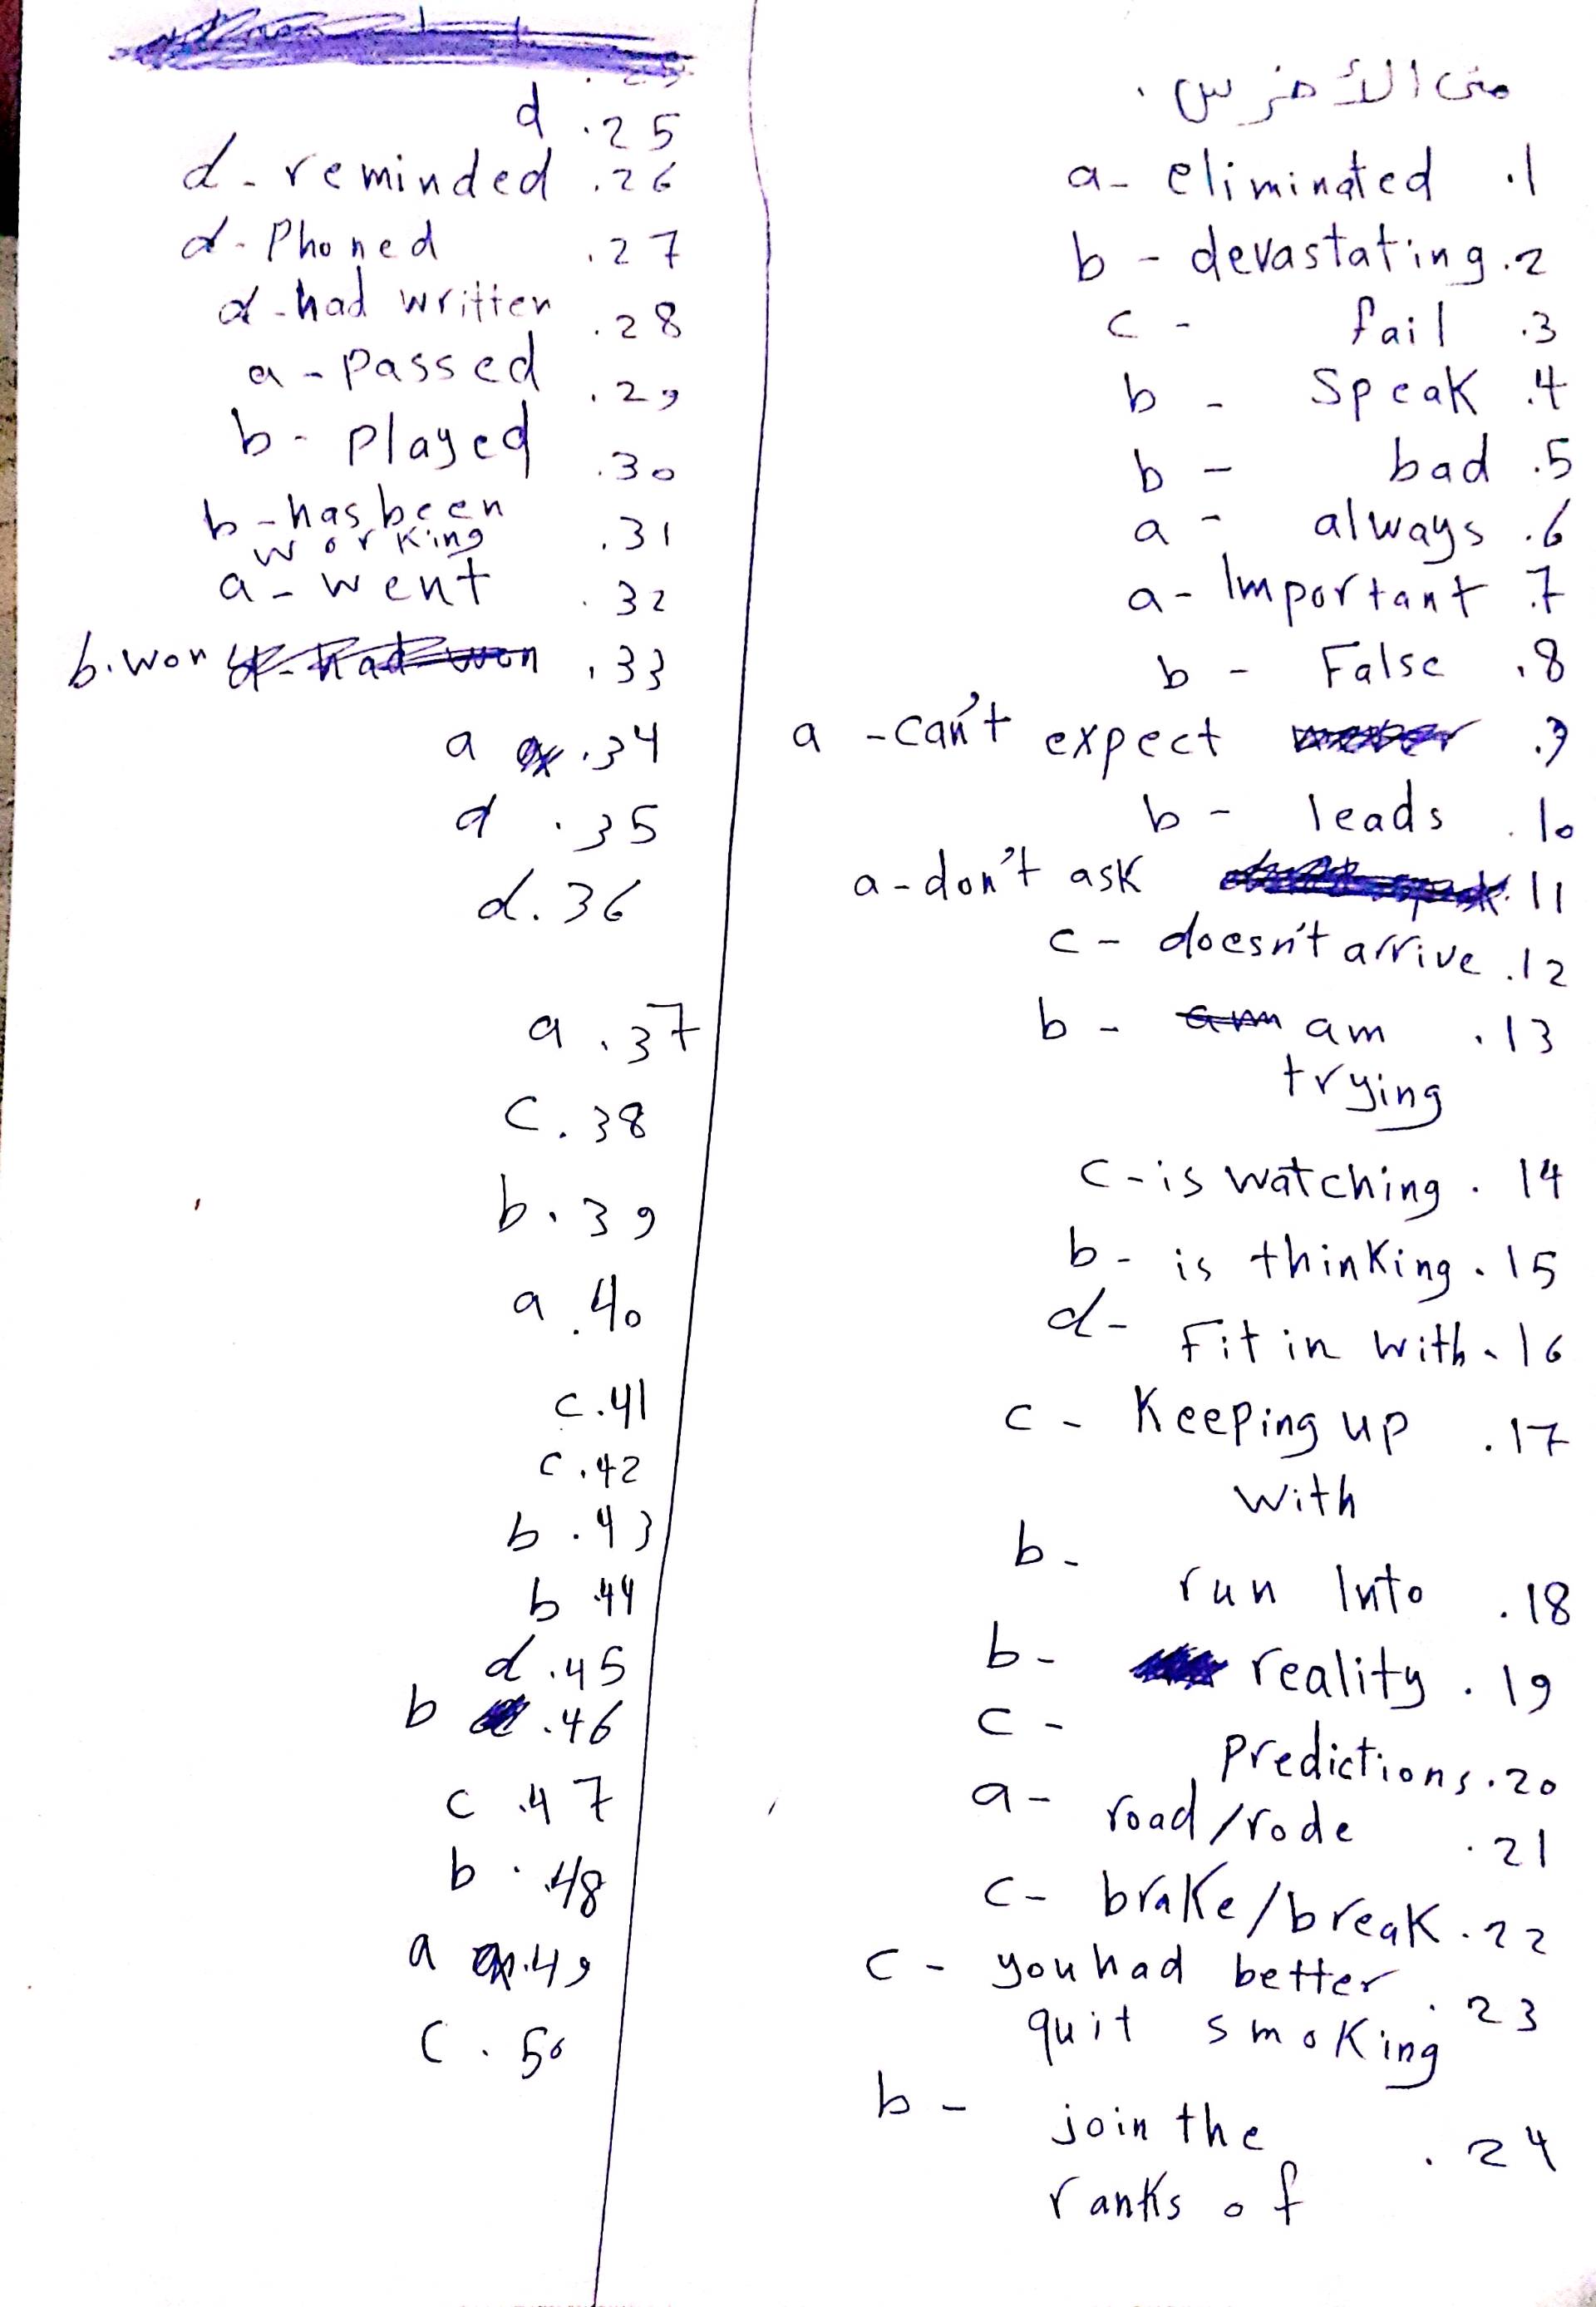 منى الأخرس.
a- eliminated .1
b - devastating .2
c - fail .3
b - Speak .4
b - bad .5
a - always .6
a - Important .7
b - False .8
a - can't expect .9
b - leads .10
a - don't ask .11
c - doesn't arrive .12
b - am .13
trying
c - is watching . 14
b - is thinking . 15
d - Fit in with . 16
c - Keeping up .17
with
b - run Into .18
b - reality . 19
c - Predictions . 20
a - road/rode .21
c - brake/break . 22
c - you had better .23
quit smoking
b - join the .24
ranks of
d .25
d - reminded .26
d - Phoned .27
d - had written .28
a - Passed .29
b - Played .30
b - has been .31
working
a - went .32
b. won .33
a .34
d .35
d. 36
a .37
C. 38
b. 39
a .40
c .41
c .42
b .43
b .44
d .45
b .46
c .47
b . 48
a .49
C . 50